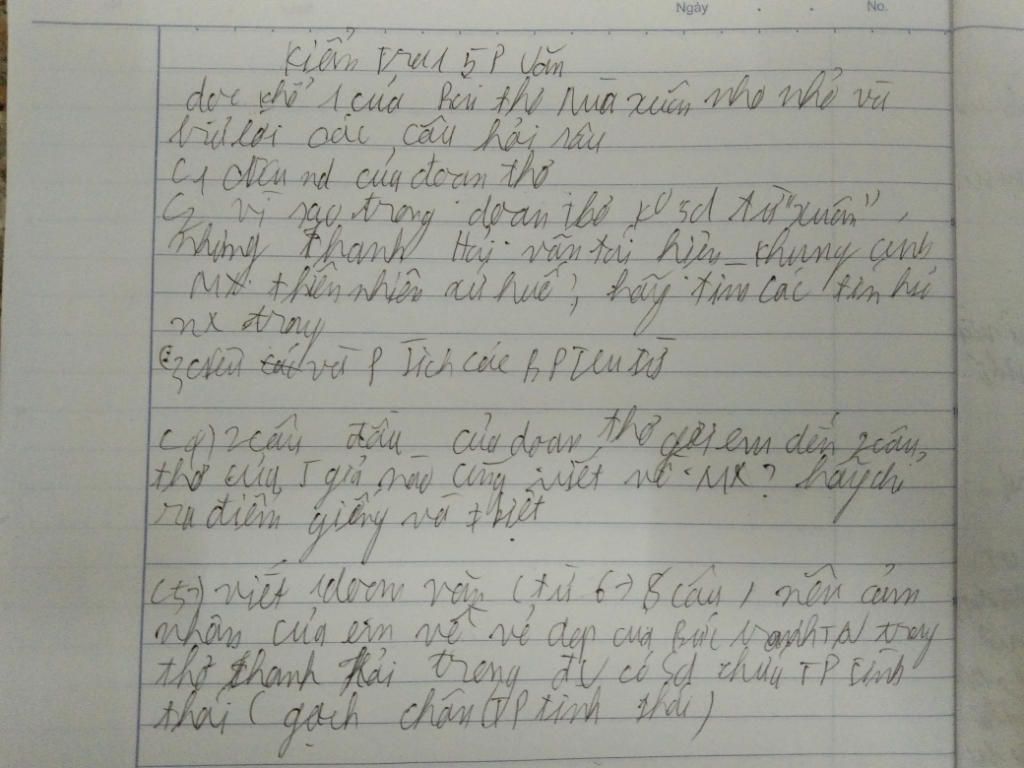 Ngày . . No.
Kiểm tra 15 P Văn
đọc khổ 1 của Bài thơ Mùa xuân nho nhỏ và
trả lời các câu hỏi sau
C1 Nêu nd của đoạn thơ
C2 vì sao trong đoạn thơ ko sd từ "xuân",
nhưng Thanh Hải vẫn tái hiện khung cảnh
MX thiên nhiên xứ huế?, hãy tìm các tín hiệu
MX trong
C3 Nêu và P tích các BP tu từ
C4) 2 câu đầu của đoạn thơ gợi em đến 2 câu
thơ của T giả nào cũng viết về MX? hãy chỉ
ra điểm giống và # biệt
C5) viết 1 đoạn văn (từ 6 -> 8 câu) nêu cảm
nhận của em về vẻ đẹp của Bức tranh TN trong
thơ Thanh Hải trong đv có sd chứa TP tình
thái (gạch chân TP tình thái)